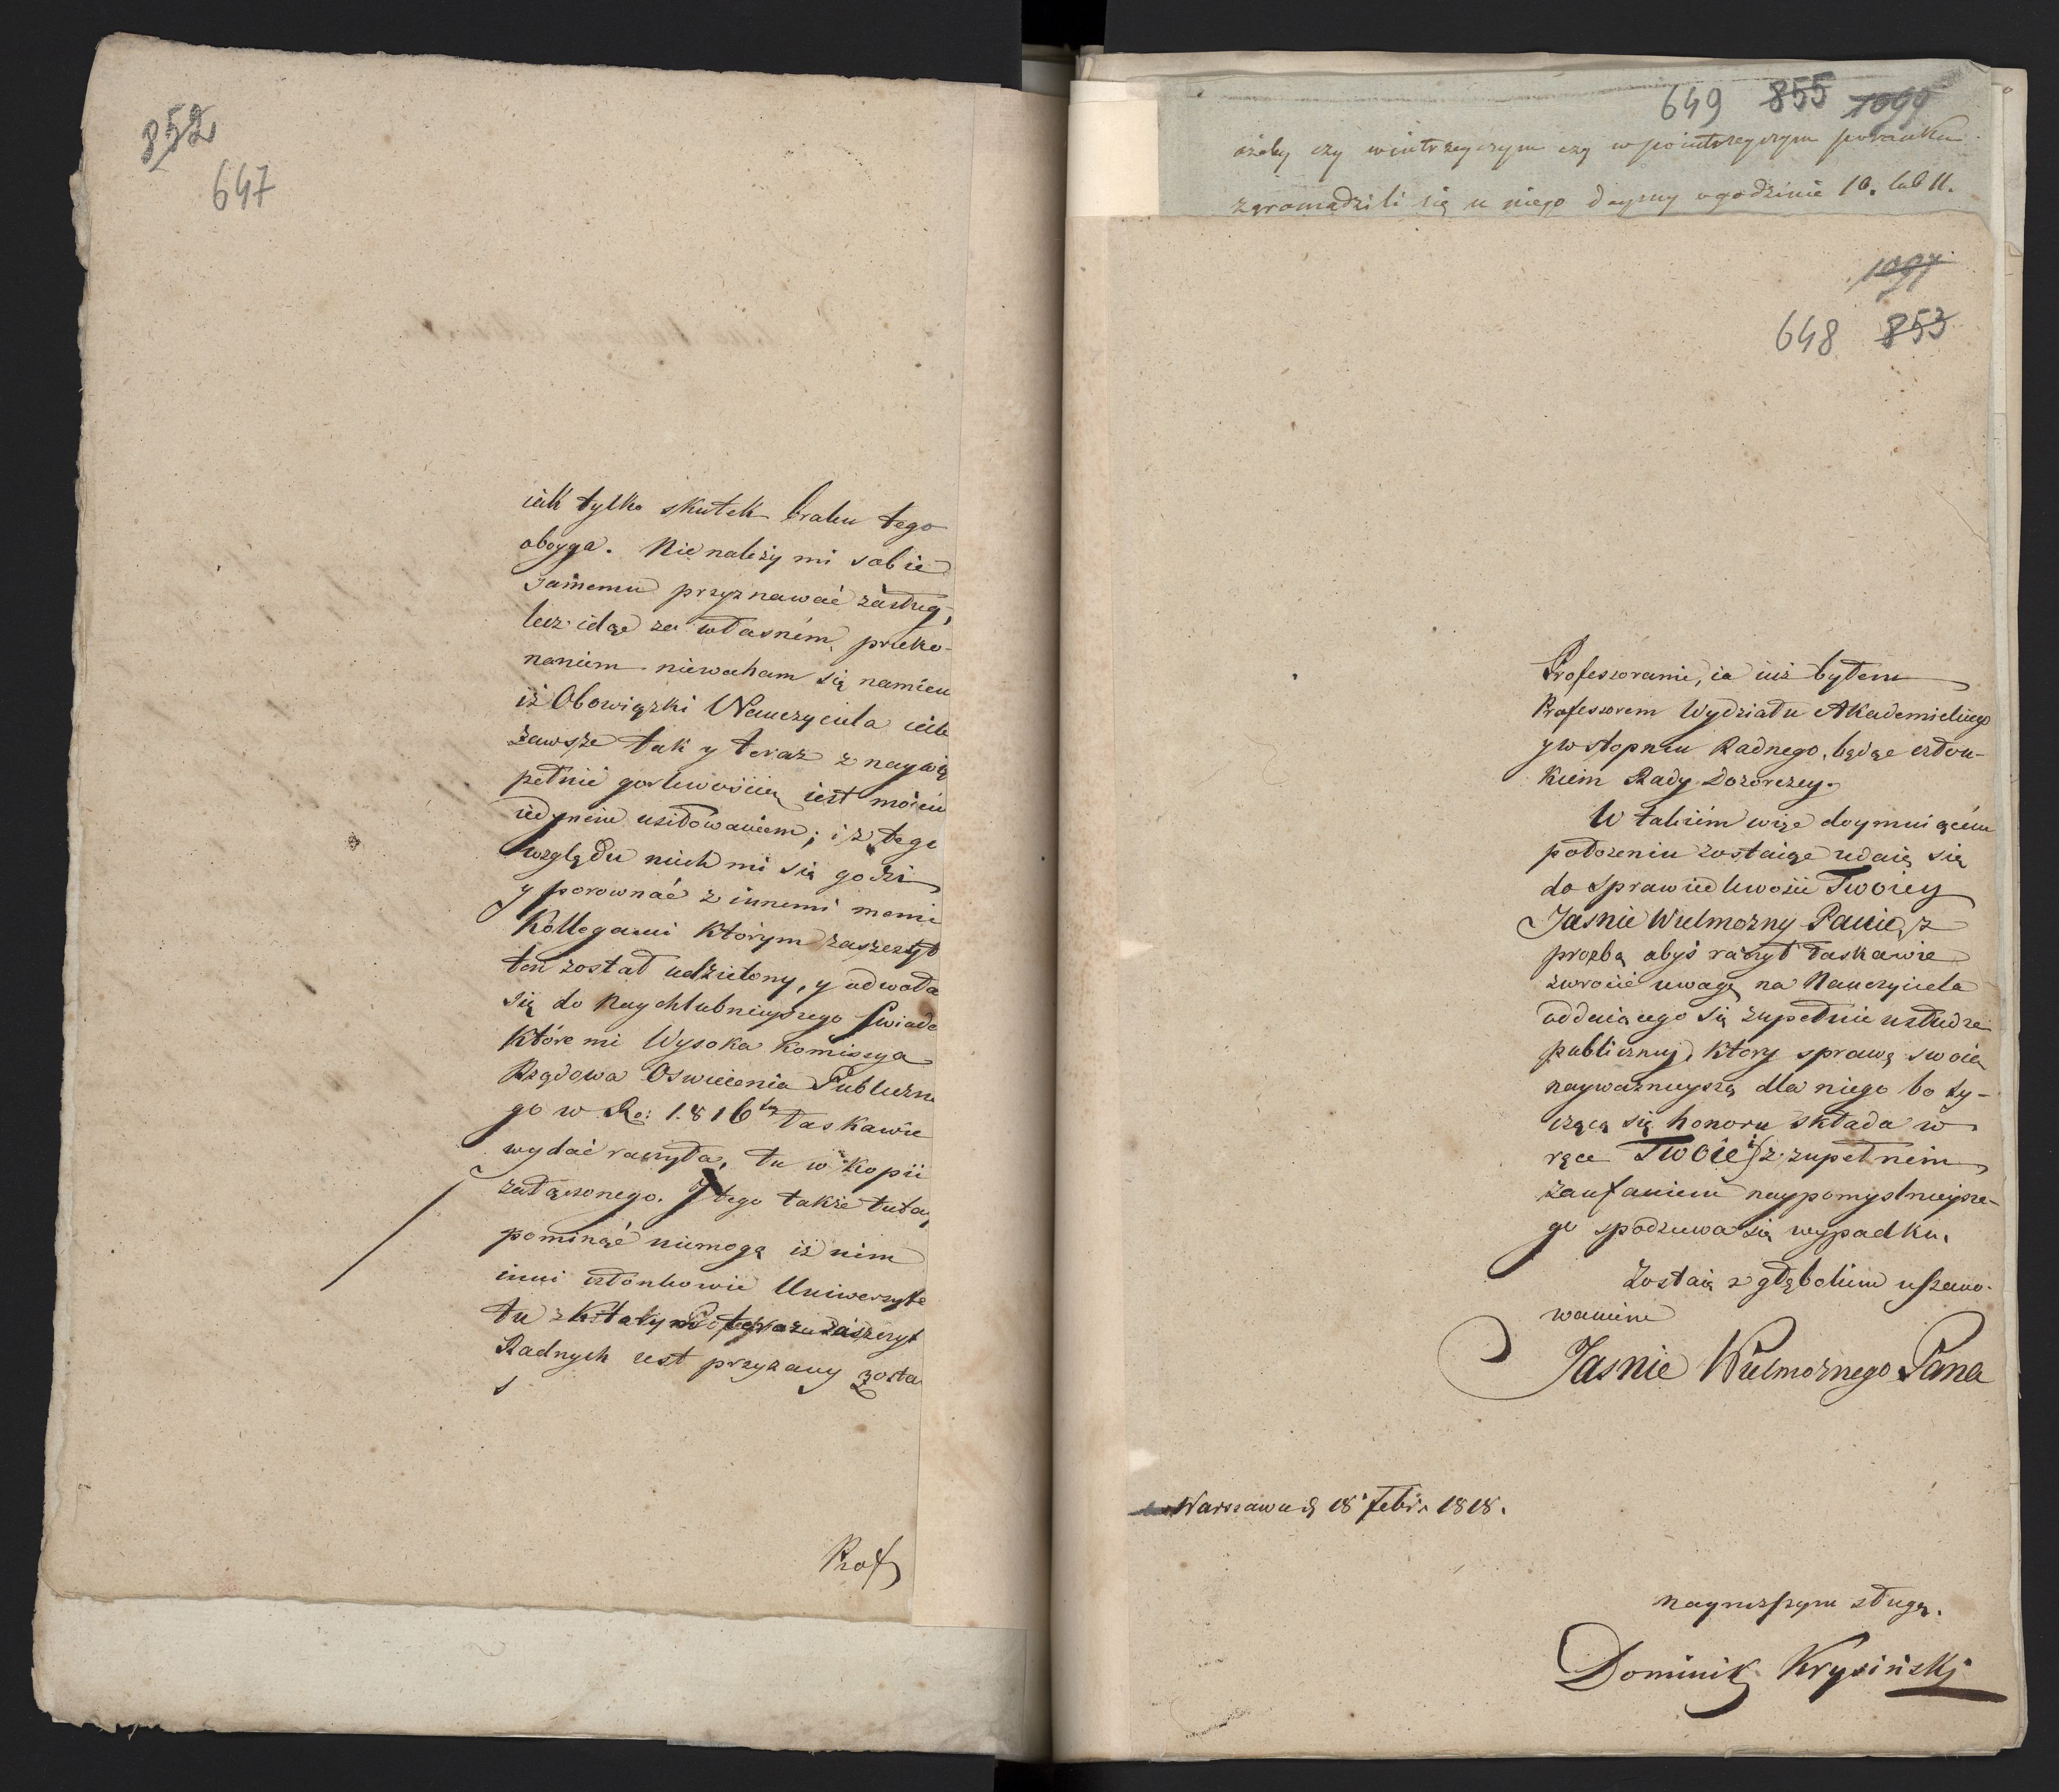 852
647
iak tylko skutek braku tego
oboyga. Nie należy mi sobie
samemu przyznawać zasług,
lecz idąc za własném przeko-
naniem niewaham się namien
iż Obowiązki Nauczyciela iak
zawsze tak y teraz z naywię
pełnić gorliwością iest moiém
iedyném usiłowaniem; i z tego
względu niech mi się godzi
y porownać z innemi memi
Kollegami którym zaszczyt
ten został udzielony, y odwoła
się do Naychlubnieyszego Swiade
które mi Wysoka Komissya
Rządowa Oswiecenia Publiczne
go w Ro: 1816 łaskawie
wydać raczyła, tu w kopii
załączonego. I tego także tutay
pominąć niemogę iż nim
inni członkowie Uniwersyte
tu zaszczyt
Radnych iest przyznany zosta
Prof
649 855 1099
ażeby czy wintrzeyszym czy w pointrzeyszym poranku
zgromadzili się u niego daymy o godzinie 10. lub 11.
1097
648 853
Professorami, ia iuż byłem
Professorem Wydziału Akademickiego
y w stopniu Radnego, będąc człon-
kiem Rady Dozorczey.
W takiém więc doymuiącém
położeniu zostaiąc udaię się
do sprawiedliwości Twoiey
Jasnie Wielmożny Panie, z
prozbą abyś raczył łaskawie
zwrocić uwagę na Nauczyciela
oddaiącego się zupełnie usłudze
publiczney, ktory sprawę swoię
nayważnieyszą dla niego bo ty-
czącą się honoru składa w
ręce Twoie z zupełnem
zaufaniem naypomyślnieysze-
go spodziewa się wypadku.
Zostaię z głębokiem uszano-
waniem
Jasnie Wielmożnego Pana
Warszawa d. 18 Febr. 1818.
nayniższym sługą.
Dominik Krysiński